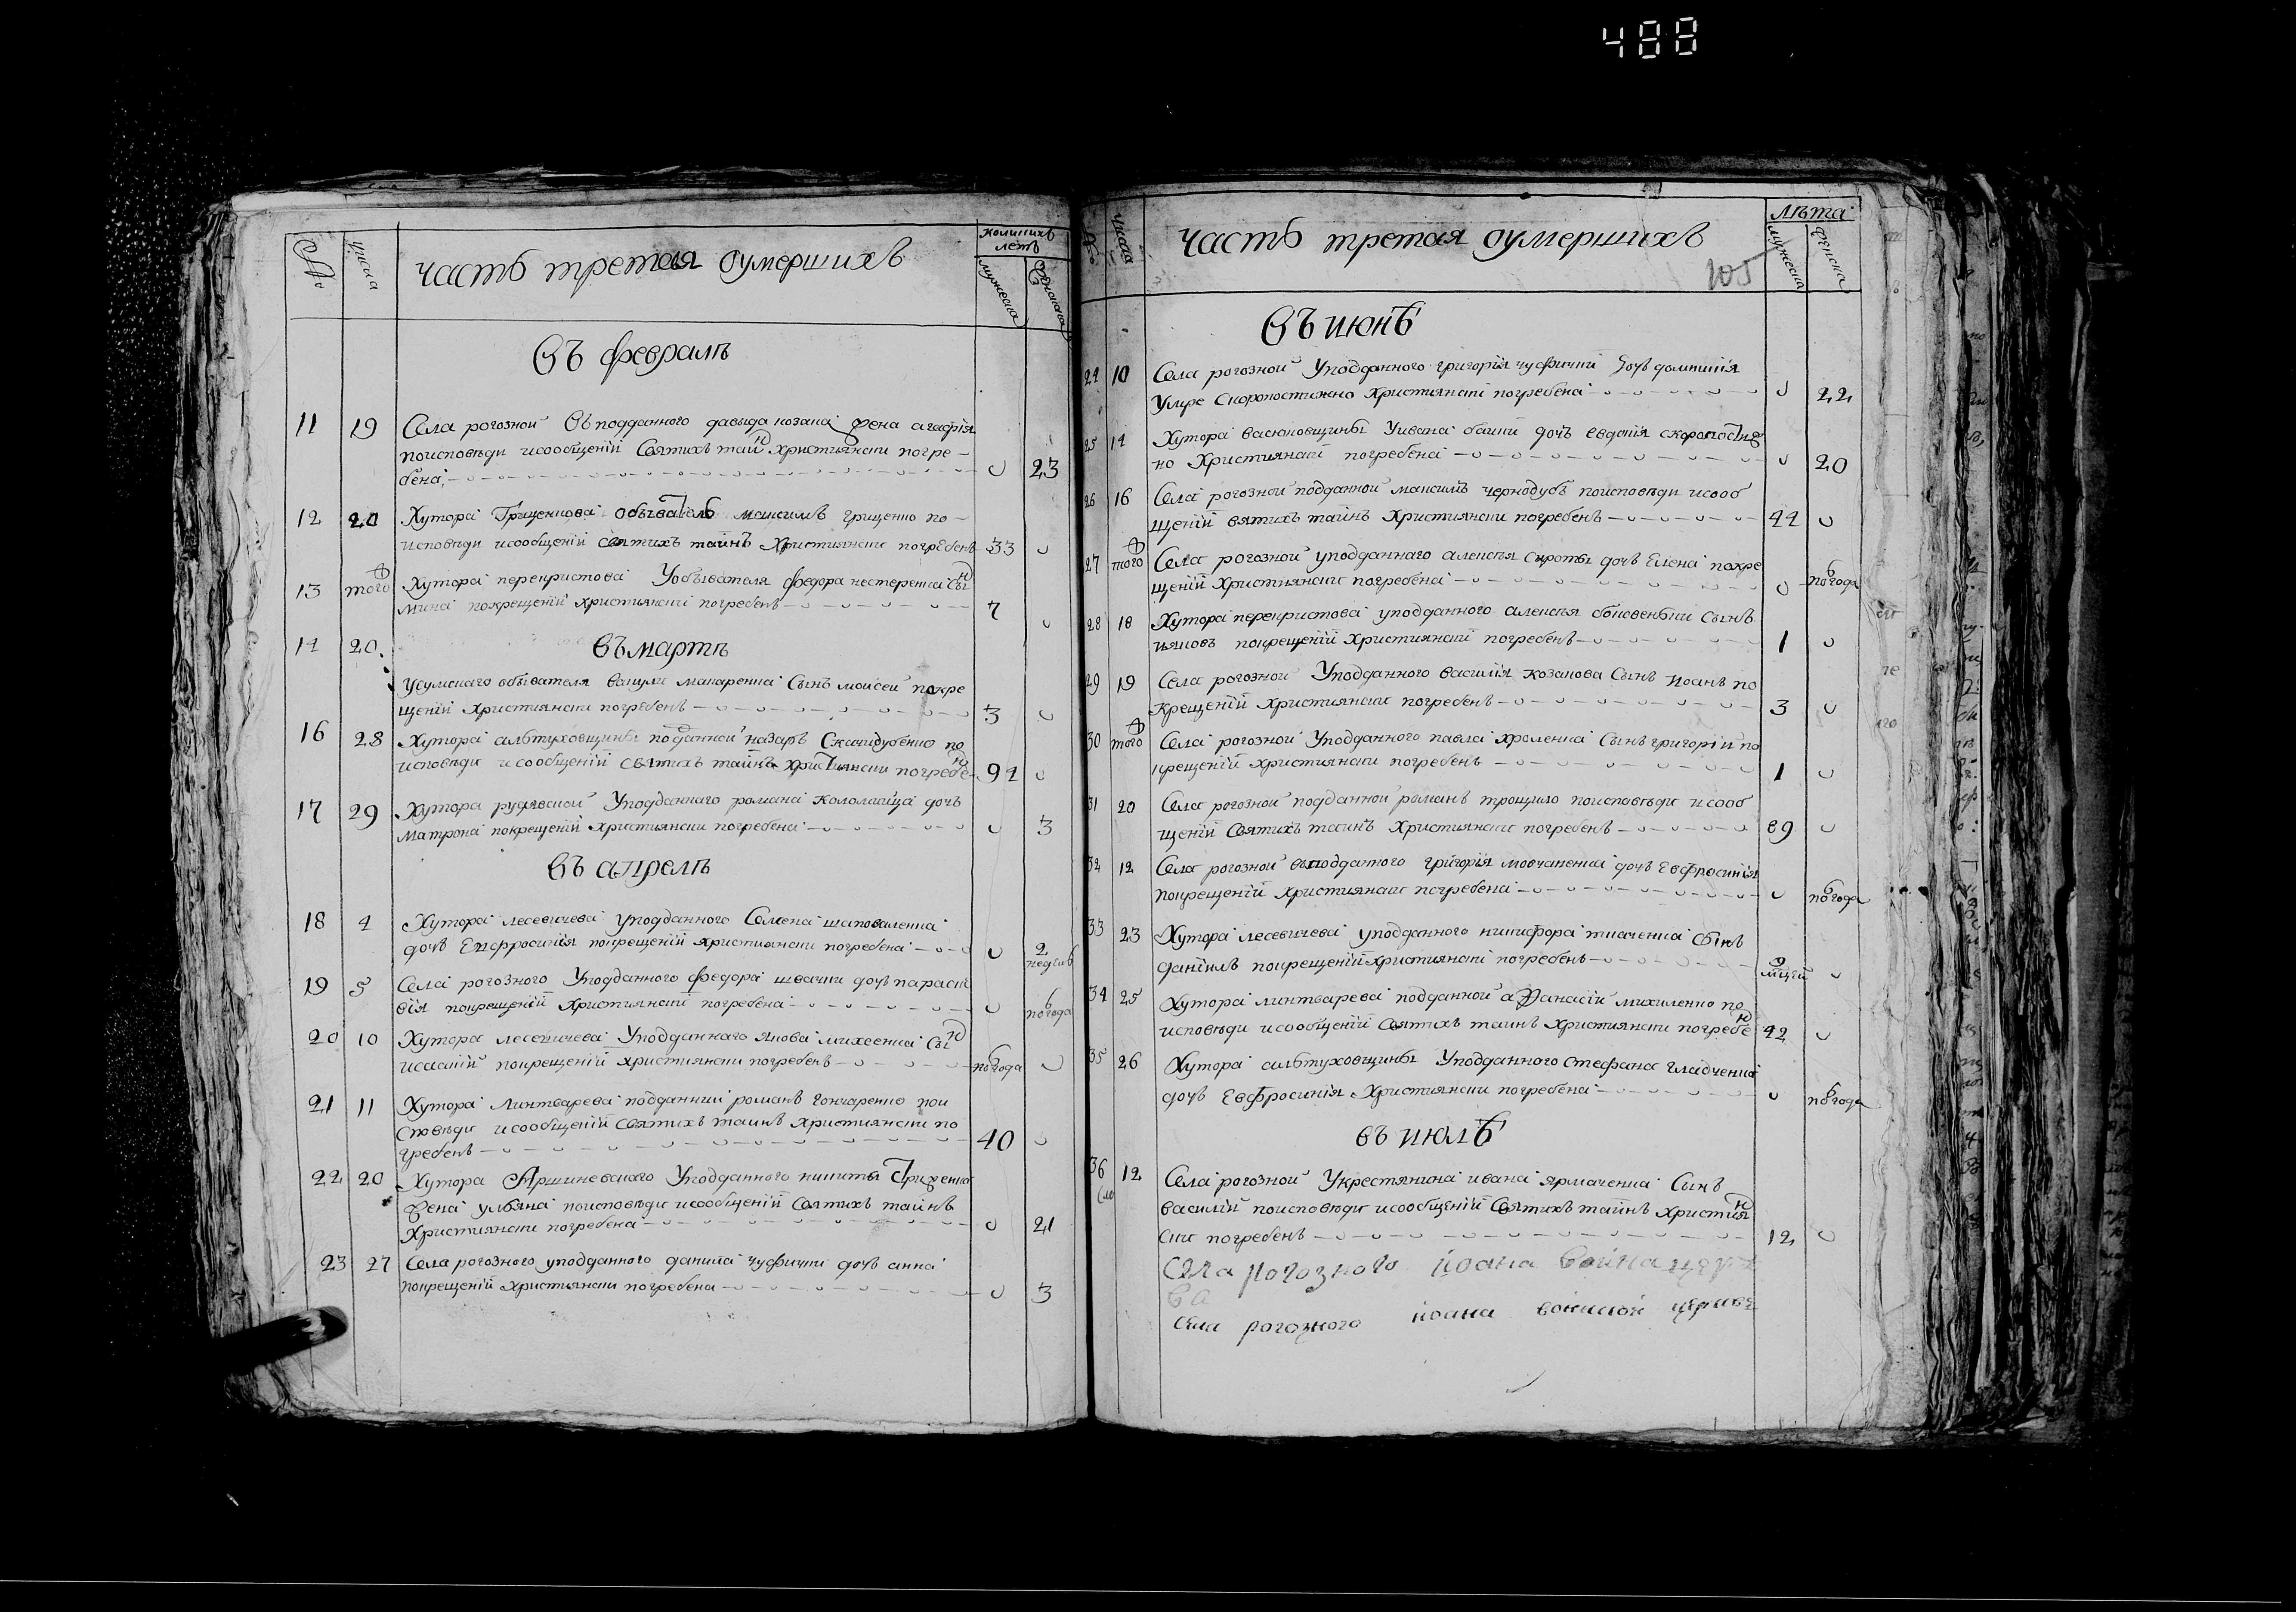 488
№ числа часть третая оумершихъ коликихъ летъ мужеска женска
въ февралѣ
11 19 Села рогозной въ подданного давыда козака жена агафія
поисповѣди исообщеній Святихъ тайн християнски погре-
бена 23
12 20 Хутора Гриценкова обыватель максимъ гриценко по-
исповѣди исообщеній святихъ тайнъ християнски погребенъ 33
13 того Хутора перекристова Уобывателя федора нестеренка Сын
мина покрещеній християнски погребенъ 7
14 20. въ мартѣ
Усумскаго обывателя вакули макаренка Сынъ моисей покре
щеній християнски погребенъ 3
16 28 Хутора алтуховщины подданной назаръ по
исповѣди исообщеній святихъ тайнъ християнски погребен 94
17 29 Хутора руднвской Уподданнаго романа коломийца дочь
матрона покрещеній християнски погребена 3
въ апрелѣ
18 4 Хутора лесевичева уподданного Семена шаповаленка
дочь Ефросинія покрещеній християнски погребена 2 недель
19 5 Села рогозного Уподданного федора швачки дочь параске
вія покрещеній християнски погребена полгода
20 10 Хутора лесевичева Уподданнаго якова михеенка Сын
исаакій покрещеній християнски погребенъ полгода
21 11 Хутора Линтварева подданний романъ гончаренко пои
споведи исообщеній святихъ таинъ християнски по
гребенъ 40
22 20 Хутора Аршиневского Уподданного никиты
жена ульяна поисповѣди исообщеній Святихъ тайнъ
Християнски погребена 21
23 27 Села рогозного уподданного данила чуфички дочь анна
покрещеній християнски погребена 3
№ числа часть третая оумершихъ лѣта мужеска женска
105
въ июнѣ
24 10 Села рогозной Уподданного григорія чуфички дочь домникія
Умре Скоропостижно християнски погребена 22
25 14 Хутора васюковщины Уивана байки дочь евдокія скоропостиж
но Християнски погребена 20
26 16 Села рогозной подданной максимъ чернодубъ поисповѣди исооб
щеній святихъ тайнъ Християнски погребенъ 44
27 того Села рогозной уподданнаго алексѣя сироты дочь Елена покре
щеній християнски погребена полгода
28 18 Хутора перекристова уподданного алексѣя Сынъ
ияковъ покрещеній християнски погребенъ 1
29 19 Села рогозной Уподданного василія козакова Сынъ иоанъ по
крещеній християнски погребенъ 3
30 того Села рогозной Уподданного павла хроленка Сынъ григорій по
крещеній християнски погребенъ 1
31 20 Села рогозной подданной романъ трощило поисповѣди исооб
щеній Святихъ таинъ Християнски погребенъ 89
32 12 Села рогозной въподданого григорія мовчаненка дочь Евфросинія
покрещеній християнски погребена полгода
33 23 Хутора лесевичева уподданного никифора ткаченка Сынъ
даніилъ покрещеній християнски погребенъ 9 мцей
34 25 Хутора линтварева подданной афанасій михиленко по
исповѣди исообщеній святихъ таинъ християнски погребен 42
35 26 Хутора алтуховщины Уподданного стефана гладченка
дочь Евфросинія Християнски погребена полгода
въ июлѣ
36 12 Села рогозной Укрестянина ивана ярмаченка Сынъ
василій поисповѣди исообщеній Святихъ тайнъ християн
ски погребенъ 12
Села рогозного иоана воина церк
ва
села рогозного иоана воинской церкве